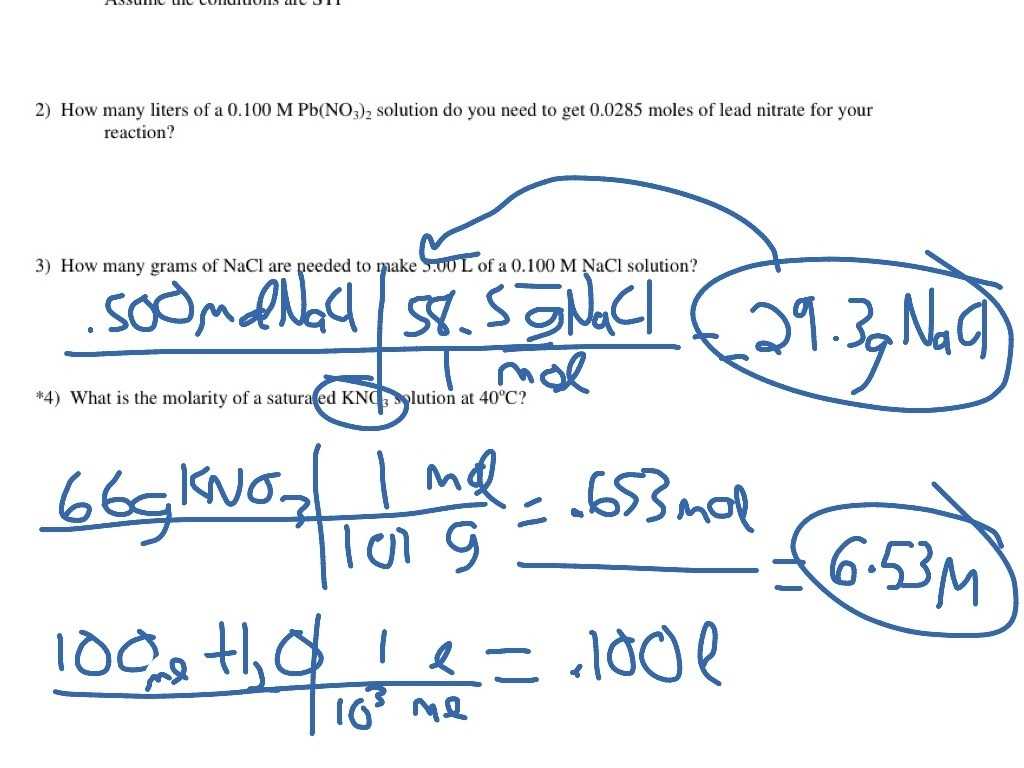 Assume the conditions are STP
2) How many liters of a 0.100 M Pb(NO₃)₂ solution do you need to get 0.0285 moles of lead nitrate for your
reaction?
3) How many grams of NaCl are needed to make 5.00 L of a 0.100 M NaCl solution?
.500 mol NaCl | 58.5 g NaCl = 29.3g NaCl
1 mol
*4) What is the molarity of a saturated KNO₃ solution at 40°C?
66g KNO₃ | 1 mol = .653 mol
101 g
= 6.53M
100 ml H₂O | 1 l = .100 l
10³ ml